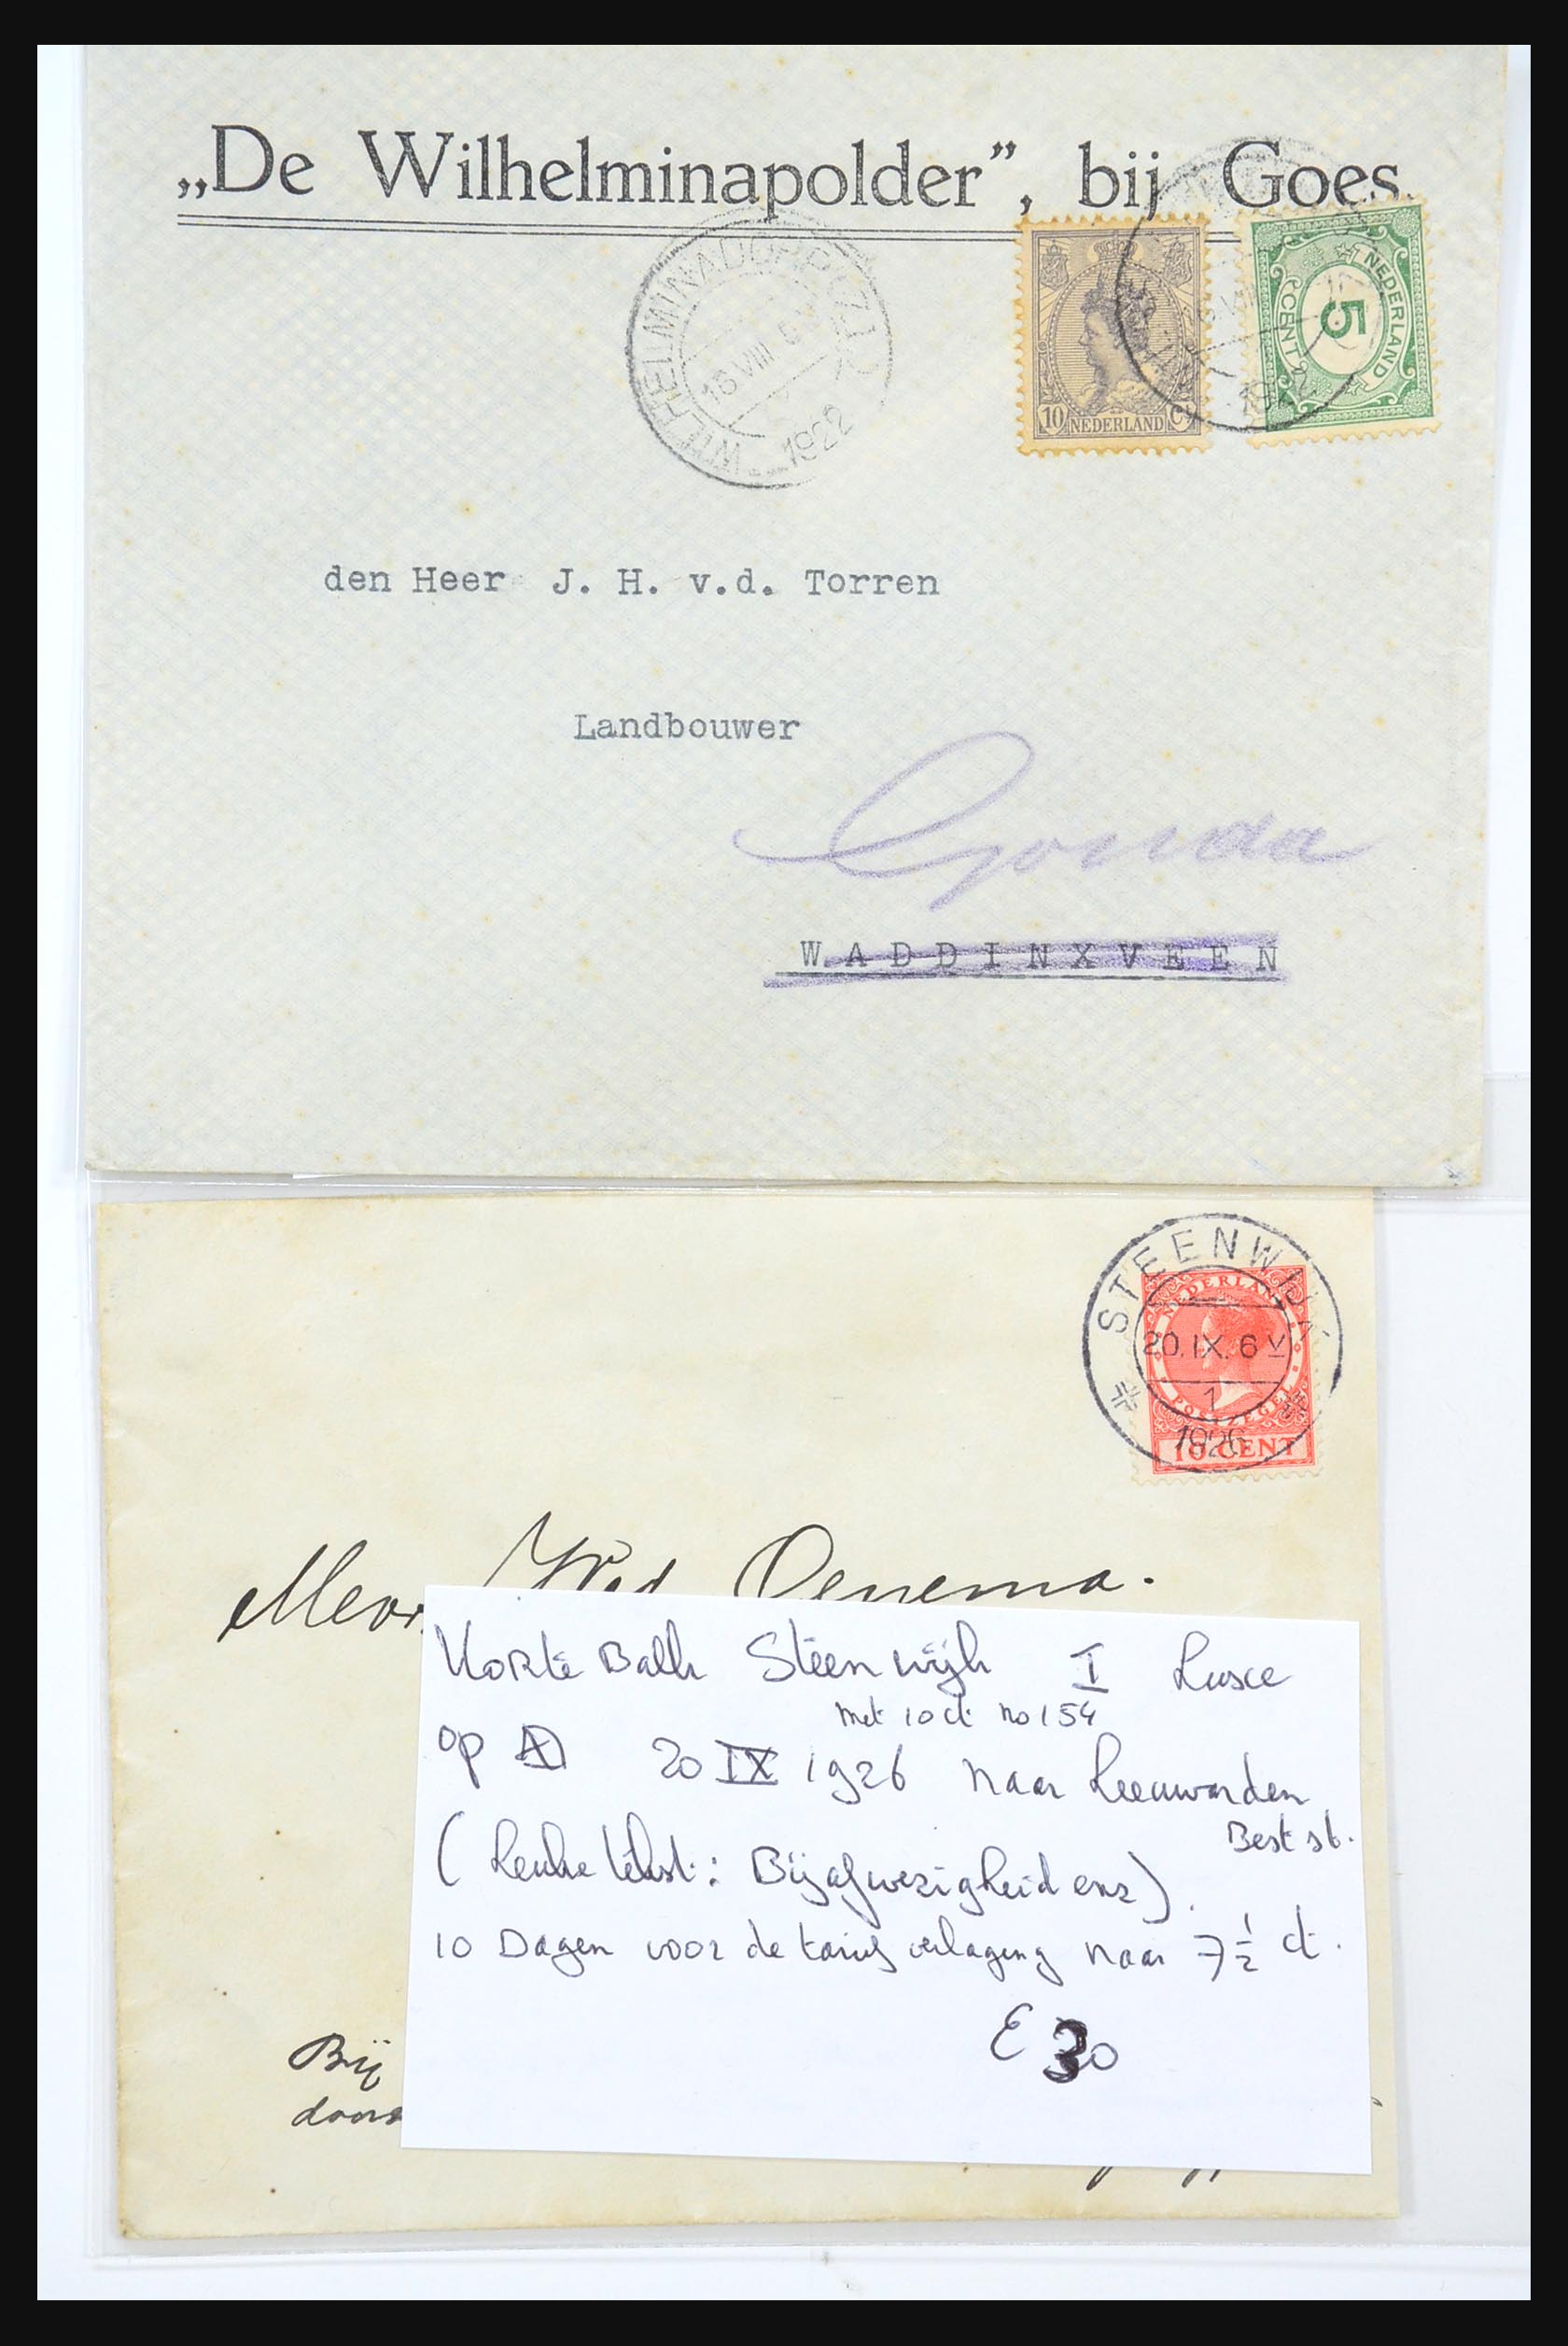 „De Wilhelminapolder”, bij Goes.
WILHELMINADORP (ZL)
16 VIII 6 V
1922
NEDERLAND
5
CENT
10 NEDERLAND Ct
1922
den Heer J. H. v.d. Torren
Landbouwer
Gouda
WADDINXVEEN
STEENWIJK
20.IX. 6 V
1
1926
NEDERLAND
POSTZEGEL
10 CENT
Mevr. Wed. Oenema.
Korte Balk Steenwijk I Luxe
met 10 ct no 154
op 20 IX 1926 naar Leeuwarden
Best st.
(Leuke tekst: Bij afwezigheid enz).
10 Dagen voor de tarief verlaging naar 7 1/2 ct.
E 30
Bij
doorz